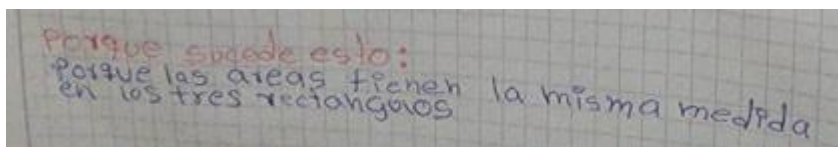 Porque sucede esto:
Porque las areas tienen la misma medida
en los tres rectangulos